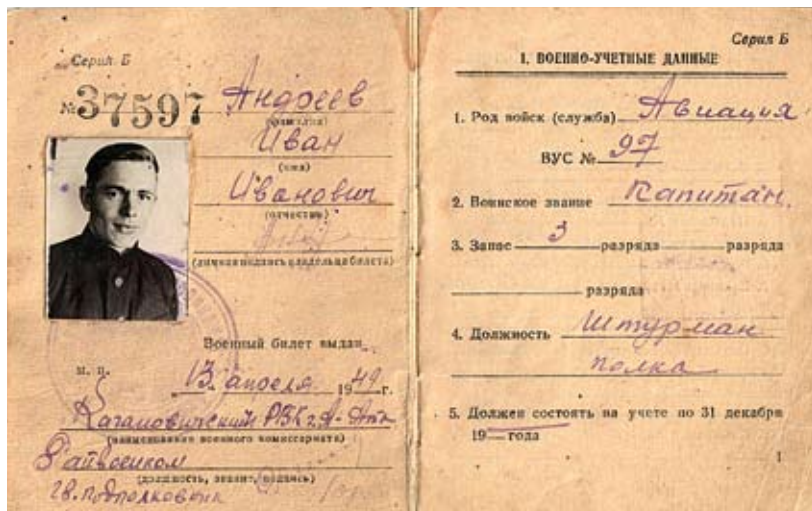 Серия Б
№ 37597
Андреев
(фамилия)
Иван
(имя)
Иванович
(отчество)
(личная подпись владельца билета)
Военный билет выдан
М. П.
13 апреля 1949 г.
Кагановичский РВК г. А-Ата
(наименование военного комиссариата)
Райвоенком
(должность, звание, подпись)
гв. подполковник
Серия Б
1. ВОЕННО-УЧЕТНЫЕ ДАННЫЕ
1. Род войск (служба) Авиация
ВУС № 97
2. Воинское звание Капитан.
3. Запас 3 разряда разряда
разряда
4. Должность Штурман
полка
5. Должен состоять на учете по 31 декабря
19— года
1